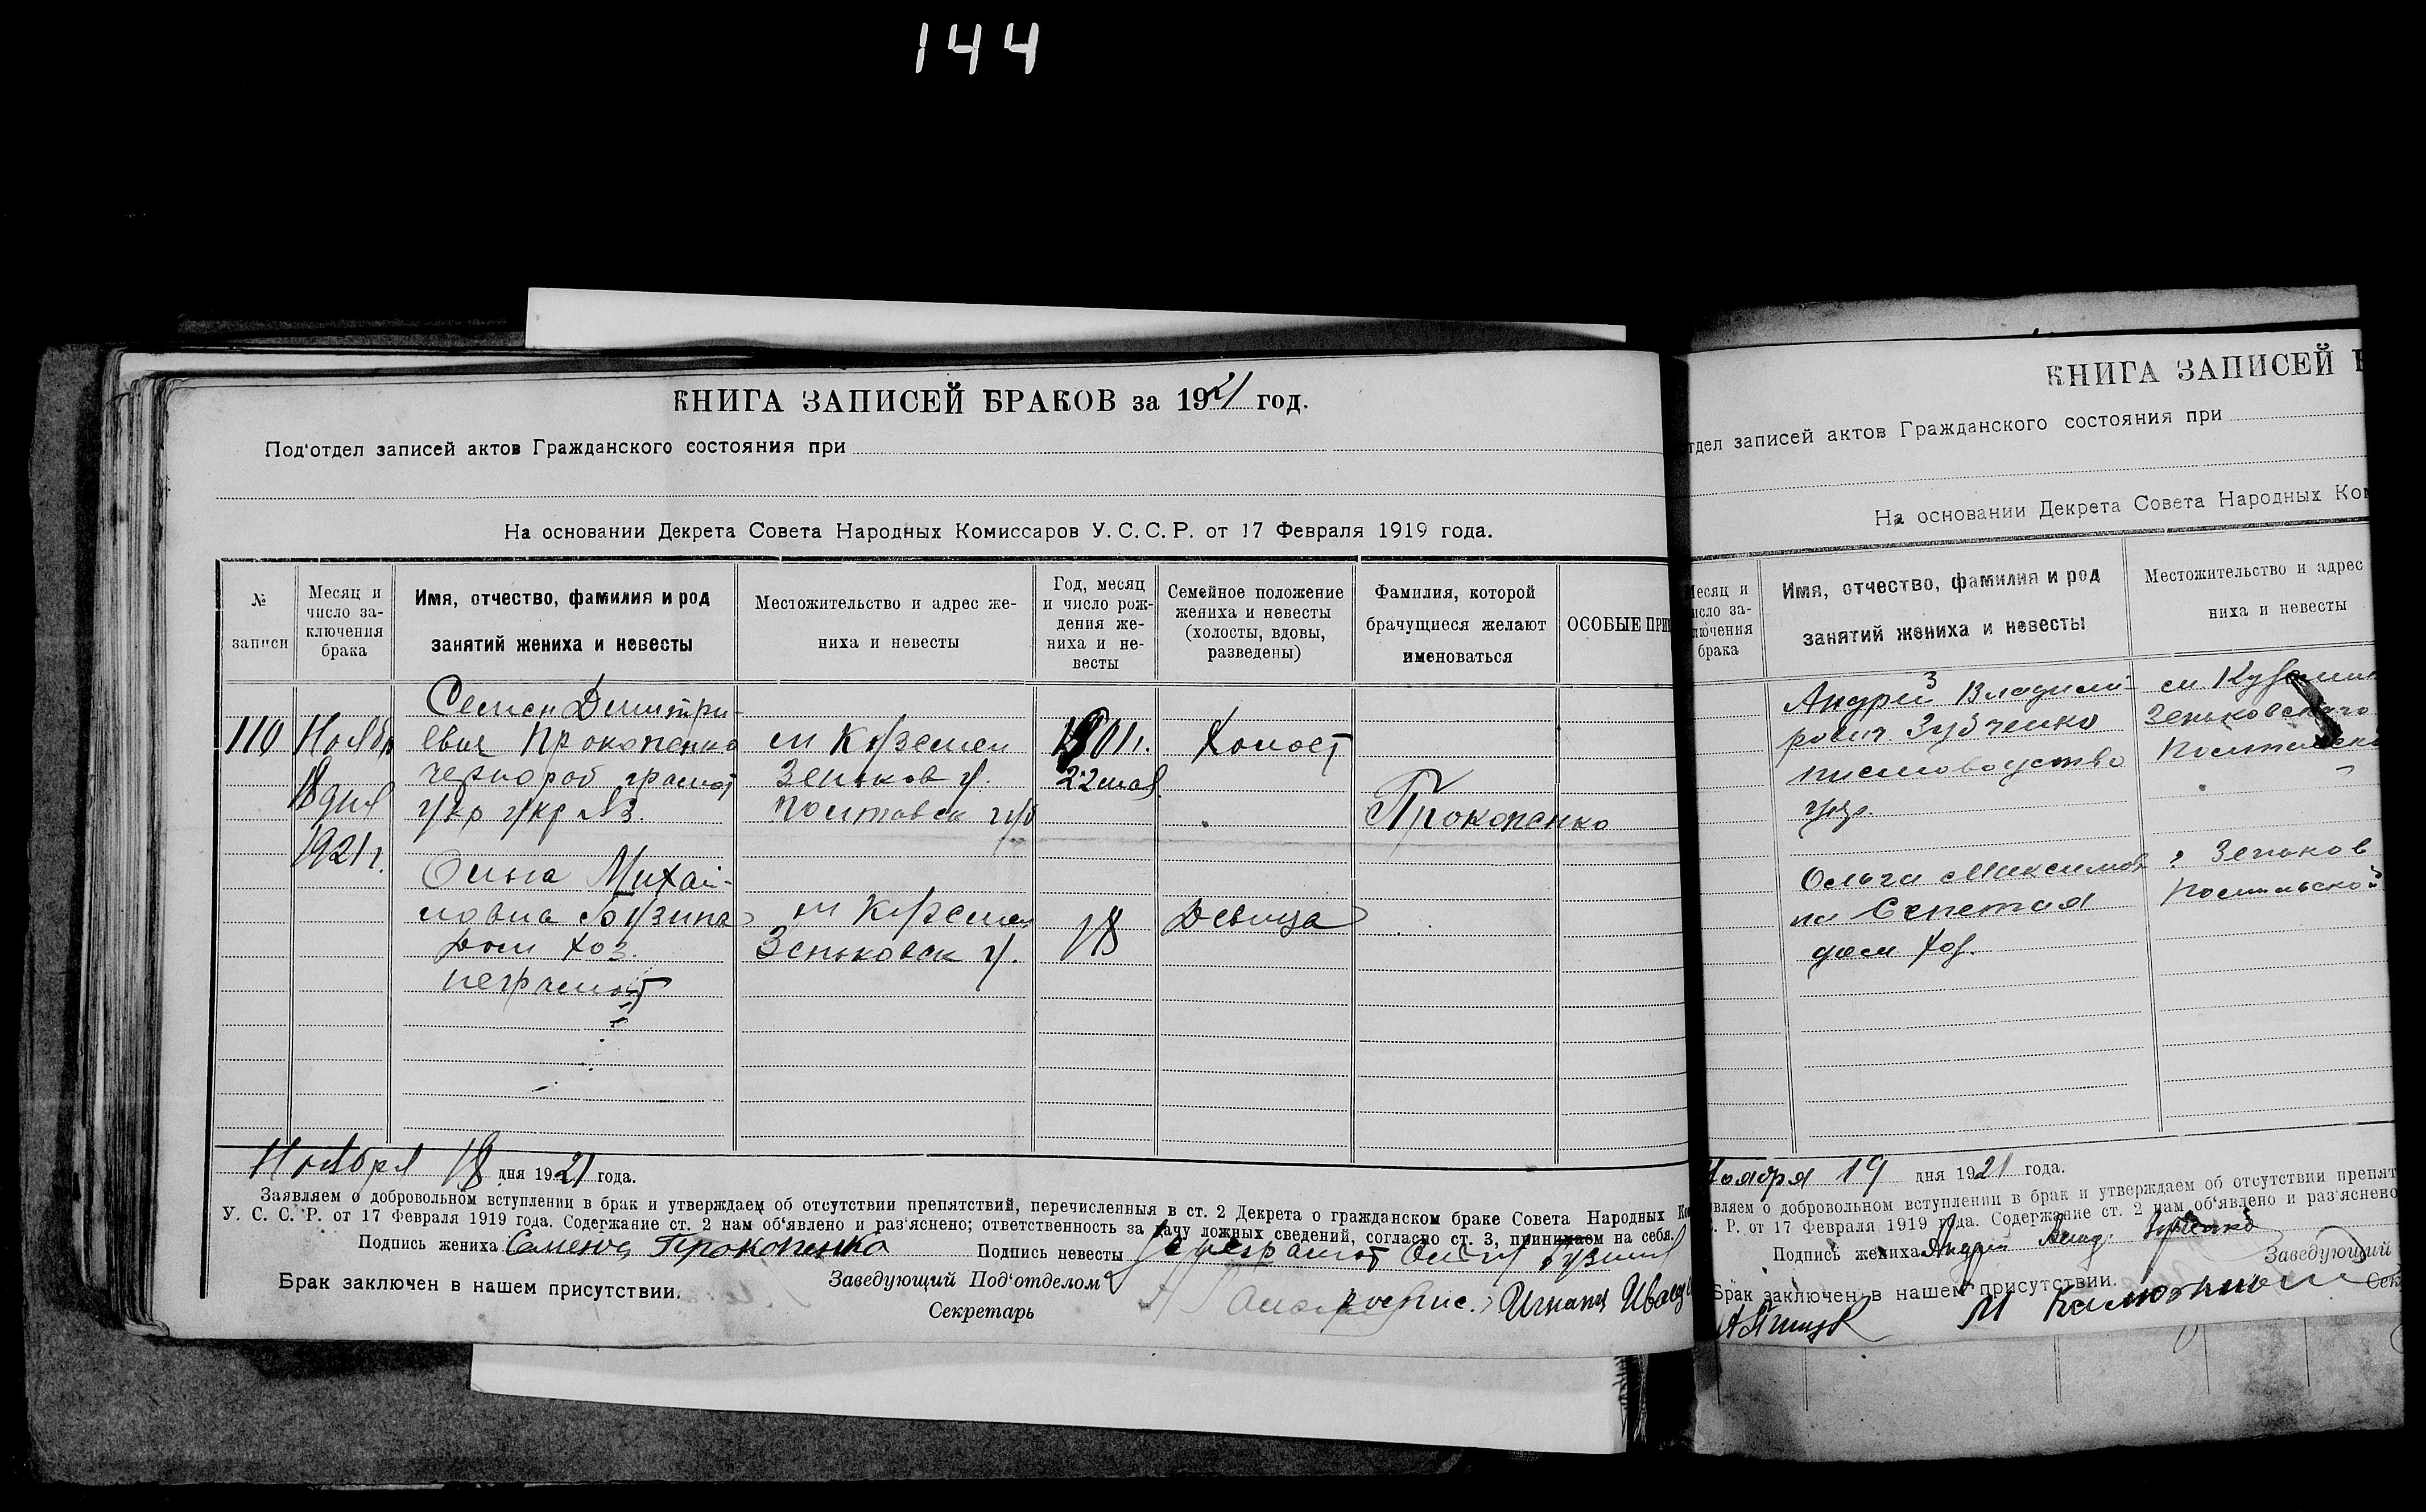 144
КНИГА ЗАПИСЕЙ БРАКОВ за 1921 год.
Под'отдел записей актов Гражданского состояния при
На основании Декрета Совета Народных Комиссаров У.С.С.Р. от 17 Февраля 1919 года.
№ записи
Месяц и число за-
ключения
брака
Имя, отчество, фамилия и род
занятий жениха и невесты
Местожительство и адрес же-
ниха и невесты
Год, месяц
и число рож-
дения же-
ниха и не-
весты
Семейное положение
жениха и невесты
(холосты, вдовы,
разведены)
Фамилия, которой
брачущиеся желают
именоваться
ОСОБЫЕ ПРИ
110
Ноябр
18 дня
1921 г.
Семен Димитри-
евич Прокопенко
чернораб грамот
укр укр №3.
Ольга Михай-
ловна Бузина
дом хоз.
неграмот
м Куземен
Зеньков у.
Полтавск губ
м Куземен
Зеньковск у.
1801г.
22 мая
18
Холост
Девица
Прокопенко
Ноября 18 дня 1921 года.
Заявляем о добровольном вступлении в брак и утверждаем об отсутствии препятствий, перечисленныя в ст. 2 Декрета о гражданском браке Совета Народных
У. С. С. Р. от 17 Февраля 1919 года. Содержание ст. 2 нам об'явлено и раз'яснено; ответственность за дачу ложных сведений, согласно ст. 3, принимаем на себя.
Подпись жениха Семена Прокопенко Подпись невесты неграмот
Брак заключен в нашем присутствии. Заведующий Под'отделом
Секретарь
КНИГА ЗАПИСЕЙ Б
тдел записей актов Гражданского состояния при
На основании Декрета Совета Народных Ком
Месяц и
число за-
ключения
брака
Имя, отчество, фамилия и род
занятий жениха и невесты
Местожительство и адрес
ниха и невесты
Андрей Владими-
рович Зубченко
письмоводство
укр.
Ольга Максимов
на Сепетая
дом хоз.
Зеньковского
Полтавской
Зеньков
Ноября 19 дня 1921 года.
вляем о добровольном вступлении в брак и утверждаем об отсутствии препят
. Р. от 17 Февраля 1919 года. Содержание ст. 2 нам об'явлено и раз'яснено
Подпись жениха Андрей Влад. Зубченко
Заведующий
Брак заключен в нашем присутствии.
Сек